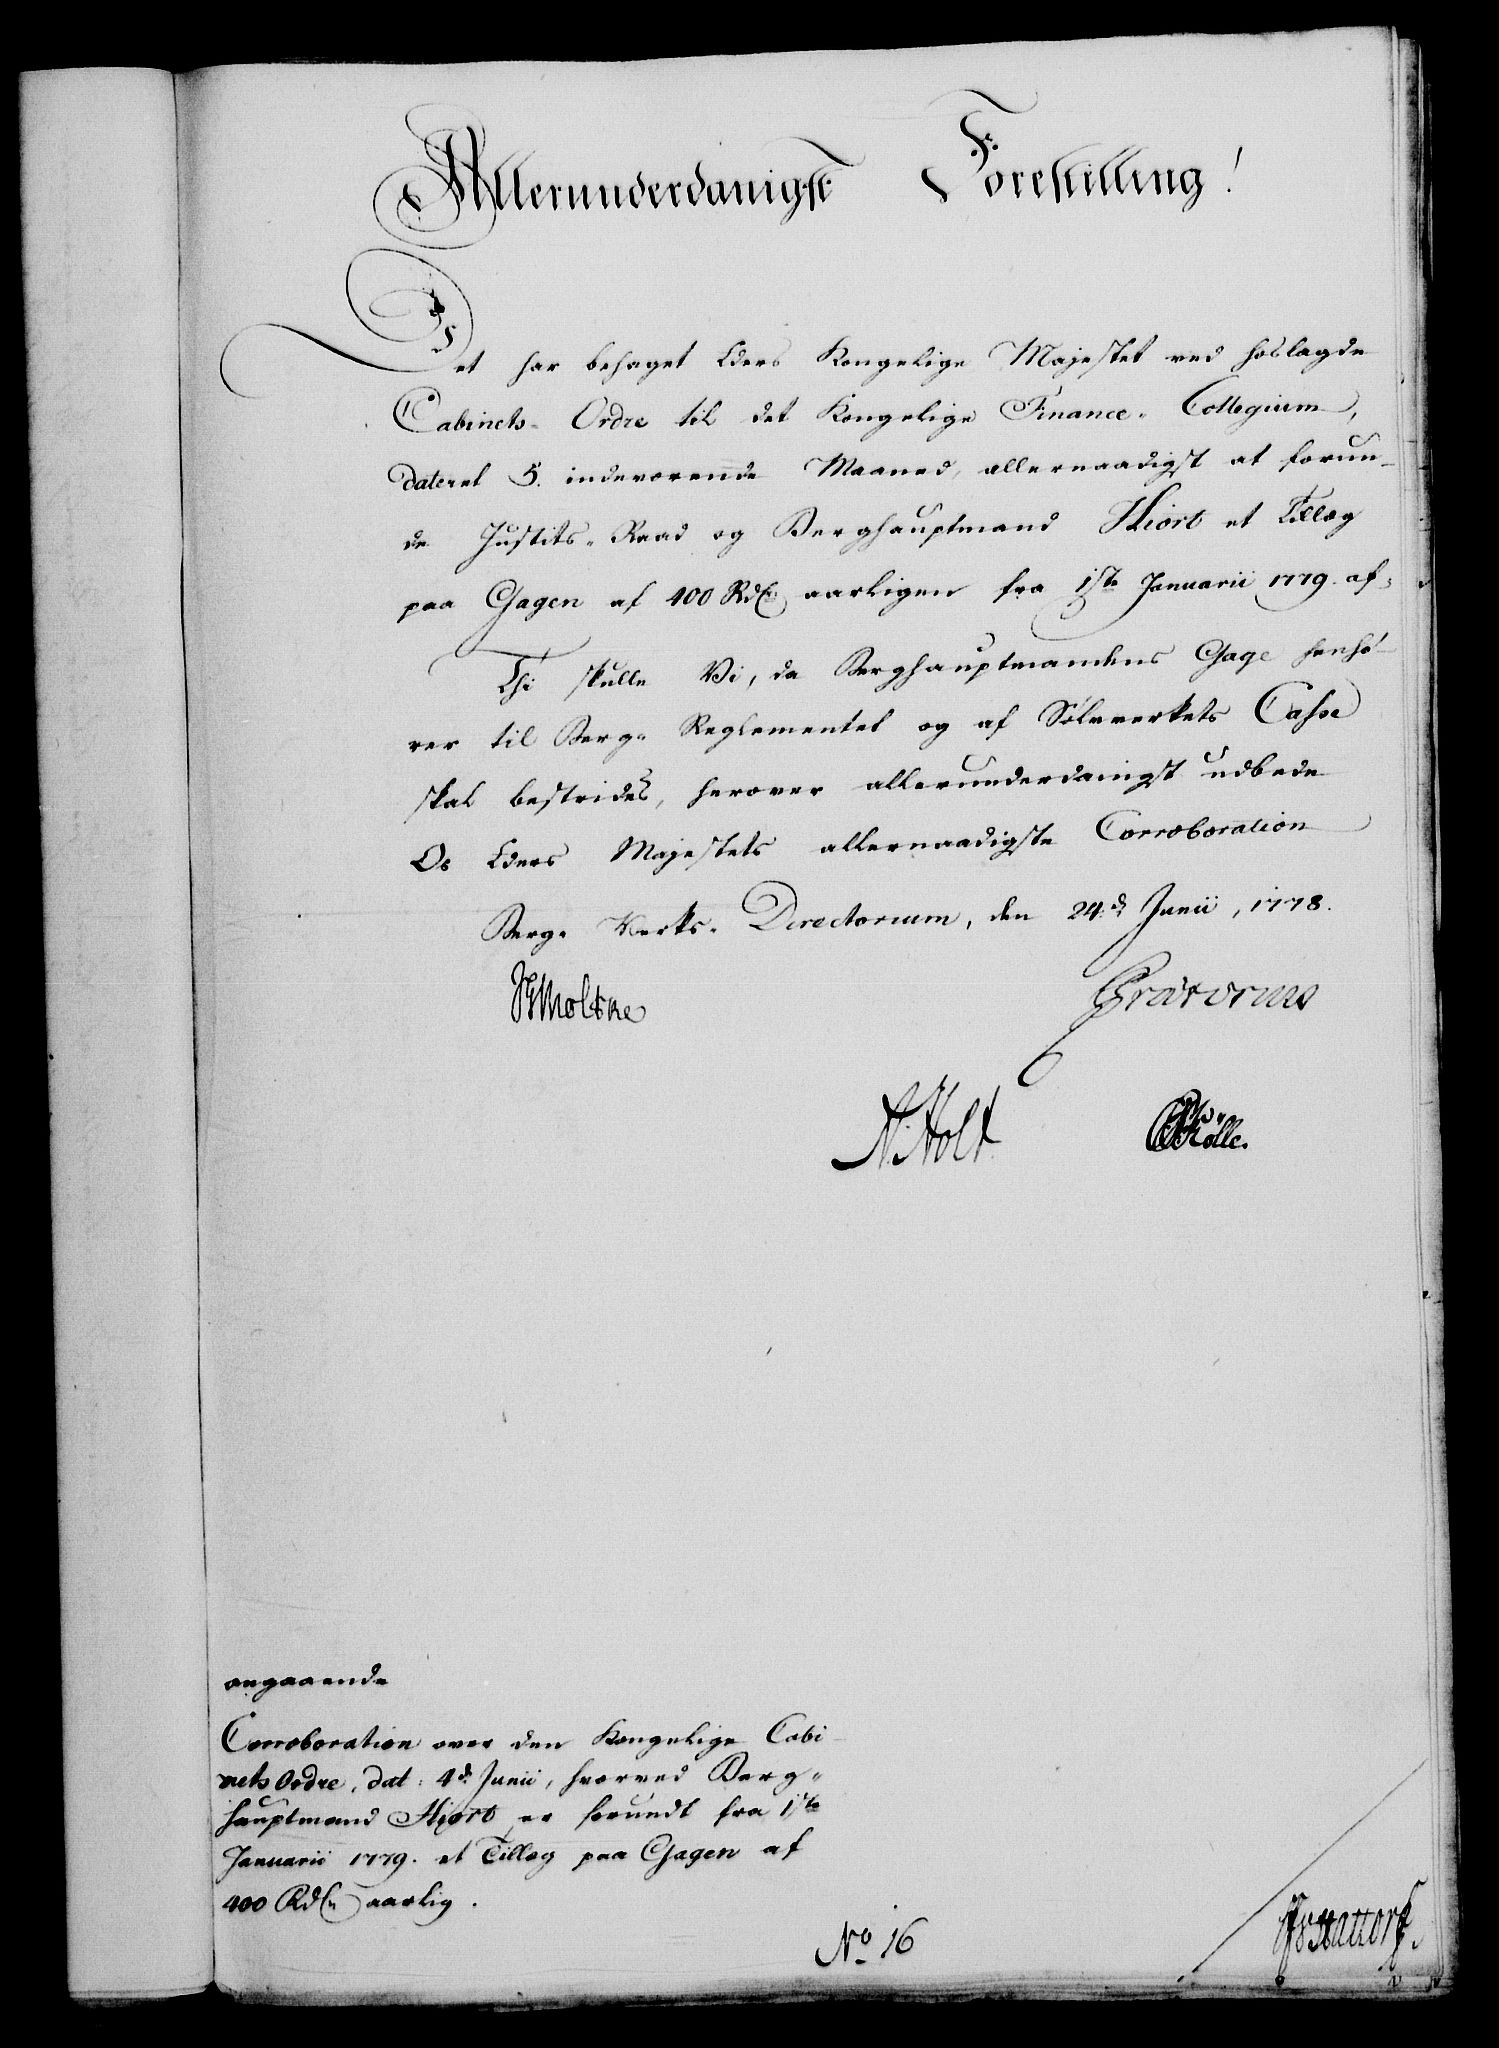 Allerunderdanigst Forestilling!
Det har behaget Eders Kongelige Majestet ved hoslagde
Cabinets- Ordre til det Kongelige Finance- Collegium,
dateret 5. indeværende Maaned, allernaadigst at forun-
de Justits- Raad og Berghauptmand Hiort et Tillæg
paa Gagen af 400 Rdlr aarligen fra 1ste Januarii 1779. af.
Thi skulle Vi, da Berghauptmandens Gage henhø-
rer til Berg- Reglementet og af Sølvverkets Casse
skal bestrides, herover allerunderdanigst udbede
Os Eders Majestets allernaadigste Corroboration
Berg- Verks- Directorium, den 24.d Junii, 1778.
Moltke Prætorius
N. Holt
angaaende
Corroboration over den Kongelige Cabi-
nets Ordre, dat: 4d. Junii, hvorved Berg-
hauptmand Hiort er forundt fra 1ste
Januarii 1779. et Tillæg paa Gagen af
400 Rdlr aarlig.
No 16